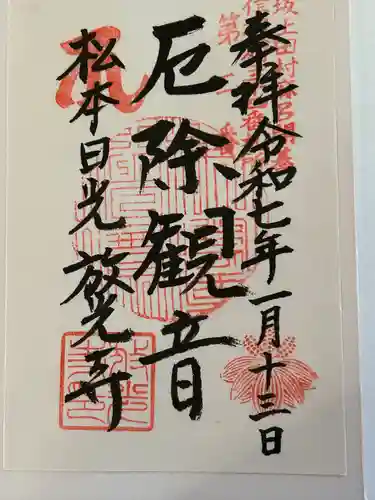 奉拝令和七年一月十三日
厄除観音
松本日光放光寺